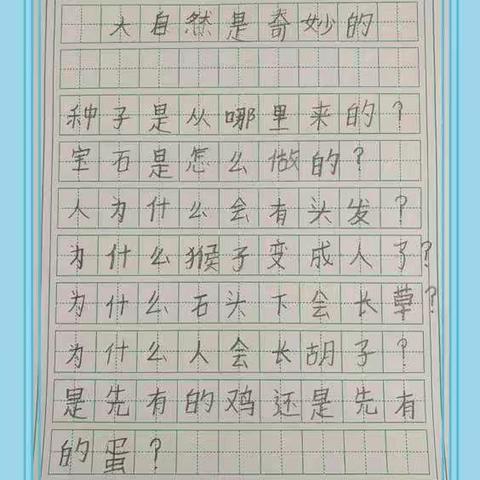 大自然是奇妙的
种子是从哪里来的？
宝石是怎么做的？
人为什么会有头发？
为什么猴子变成人了？
为什么石头下会长草？
为什么人会长胡子？
是先有的鸡还是先有
的蛋？